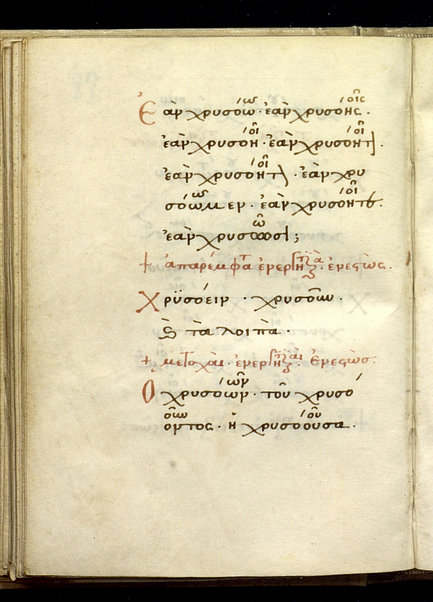 Ἐὰν χρυσόω ῶ · ἐὰν χρυσόης οῖς ·
ἐὰν χρυσόη οῖ · ἐὰν χρυσόητον οῖ ·
ἐὰν χρυσόητον οῖ · ἐὰν χρυ
σόωμεν ῶ · ἐὰν χρυσόητε οῖ ·
ἐὰν χρυσόωσι ῶ ;
+ ἀπαρέμφατα ἐνεργητικὰ · ἐνεστὼς ·
Χρϋσόειν · χρυσοῦν ·
καὶ τὰ λοιπὰ ·
+ μετοχαὶ · ἐνεργητικαὶ · ἐνεστὼς ·
Ὁ χρυσόων ῶν · τοῦ χρυσό
οντος οῦν · ἡ χρυσόουσα οῦ ·